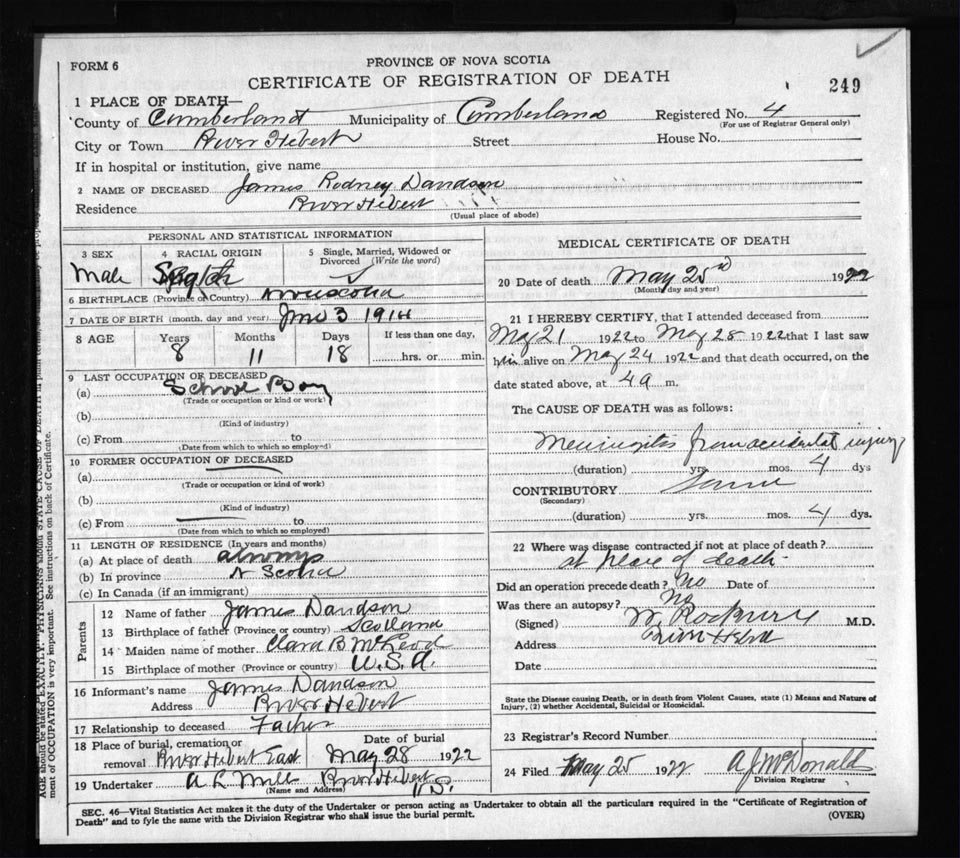 FORM 6
PROVINCE OF NOVA SCOTIA
CERTIFICATE OF REGISTRATION OF DEATH
249
1 PLACE OF DEATH—
County of Cumberland Municipality of Cumberland Registered No. 4
(For use of Registrar General only)
City or Town River Hebert Street House No.
If in hospital or institution, give name
2 NAME OF DECEASED James Rodney Davidson
Residence River Hebert
(Usual place of abode)
PERSONAL AND STATISTICAL INFORMATION
3 SEX 4 RACIAL ORIGIN 5 Single, Married, Widowed or Divorced (Write the word)
Male
6 BIRTHPLACE (Province or Country) Novascotia
7 DATE OF BIRTH (month, day and year) June 3 1914
8 AGE Years Months Days If less than one day,
8 11 18 hrs. or min.
9 LAST OCCUPATION OF DECEASED
(a) School Boy
(Trade or occupation or kind or work)
(b)
(Kind of industry)
(c) From to
(Date from which to which so employed)
10 FORMER OCCUPATION OF DECEASED
(a)
(Trade or occupation or kind of work)
(b)
(Kind of industry)
(c) From to
(Date from which to which so employed)
11 LENGTH OF RESIDENCE (In years and months)
(a) At place of death always
(b) In province N Scotia
(c) In Canada (if an immigrant)
Parents
12 Name of father James Davidson
13 Birthplace of father (Province or country) Scotland
14 Maiden name of mother Clara B McLeod
15 Birthplace of mother (Province or country) U.S.A.
16 Informant's name James Davidson
Address River Hebert
17 Relationship to deceased Father
18 Place of burial, cremation or removal River Hebert East Date of burial May 28 1922
19 Undertaker A L Mills River Hebert N.S.
(Name and Address)
MEDICAL CERTIFICATE OF DEATH
20 Date of death May 25 1922
(Month day and year)
21 I HEREBY CERTIFY, that I attended deceased from
May 21 1922 to May 25 1922 that I last saw
him alive on May 24 1922 and that death occurred, on the
date stated above, at 4 a m.
The CAUSE OF DEATH was as follows:
Meningitis from accidental injury
(duration) yrs. mos. 4 dys
CONTRIBUTORY Same
(Secondary)
(duration) yrs. mos. 4 dys.
22 Where was disease contracted if not at place of death?
at place of death
Did an operation precede death? No Date of
Was there an autopsy? No
(Signed) M.D.
Address River Hebert
Date
State the Disease causing Death, or in death from Violent Causes, state (1) Means and Nature of
Injury, (2) whether Accidental, Suicidal or Homicidal.
23 Registrar's Record Number
24 Filed May 25 1922 A J McDonald
Division Registrar
SEC. 46—Vital Statistics Act makes it the duty of the Undertaker or person acting as Undertaker to obtain all the particulars required in the "Certificate of Registration of
Death" and to fyle the same with the Division Registrar who shall issue the burial permit.
(OVER)